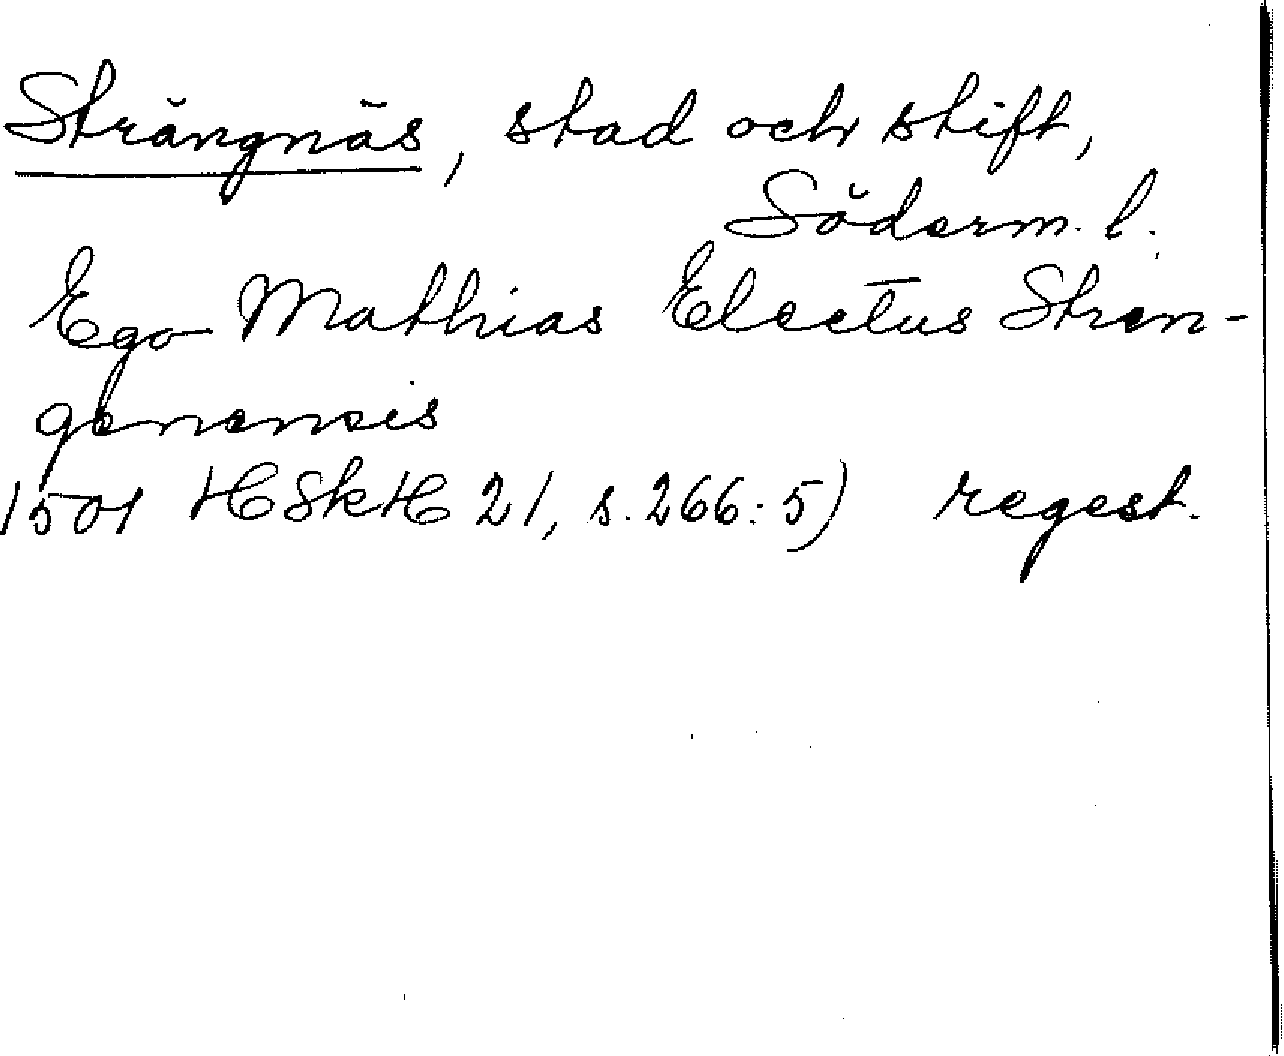 Strängnäs, stad och stift,
Söderm. l.
Ego Mathias Electus Stren-
genensis
1501 HSkH 21, s. 266: 5) regest.